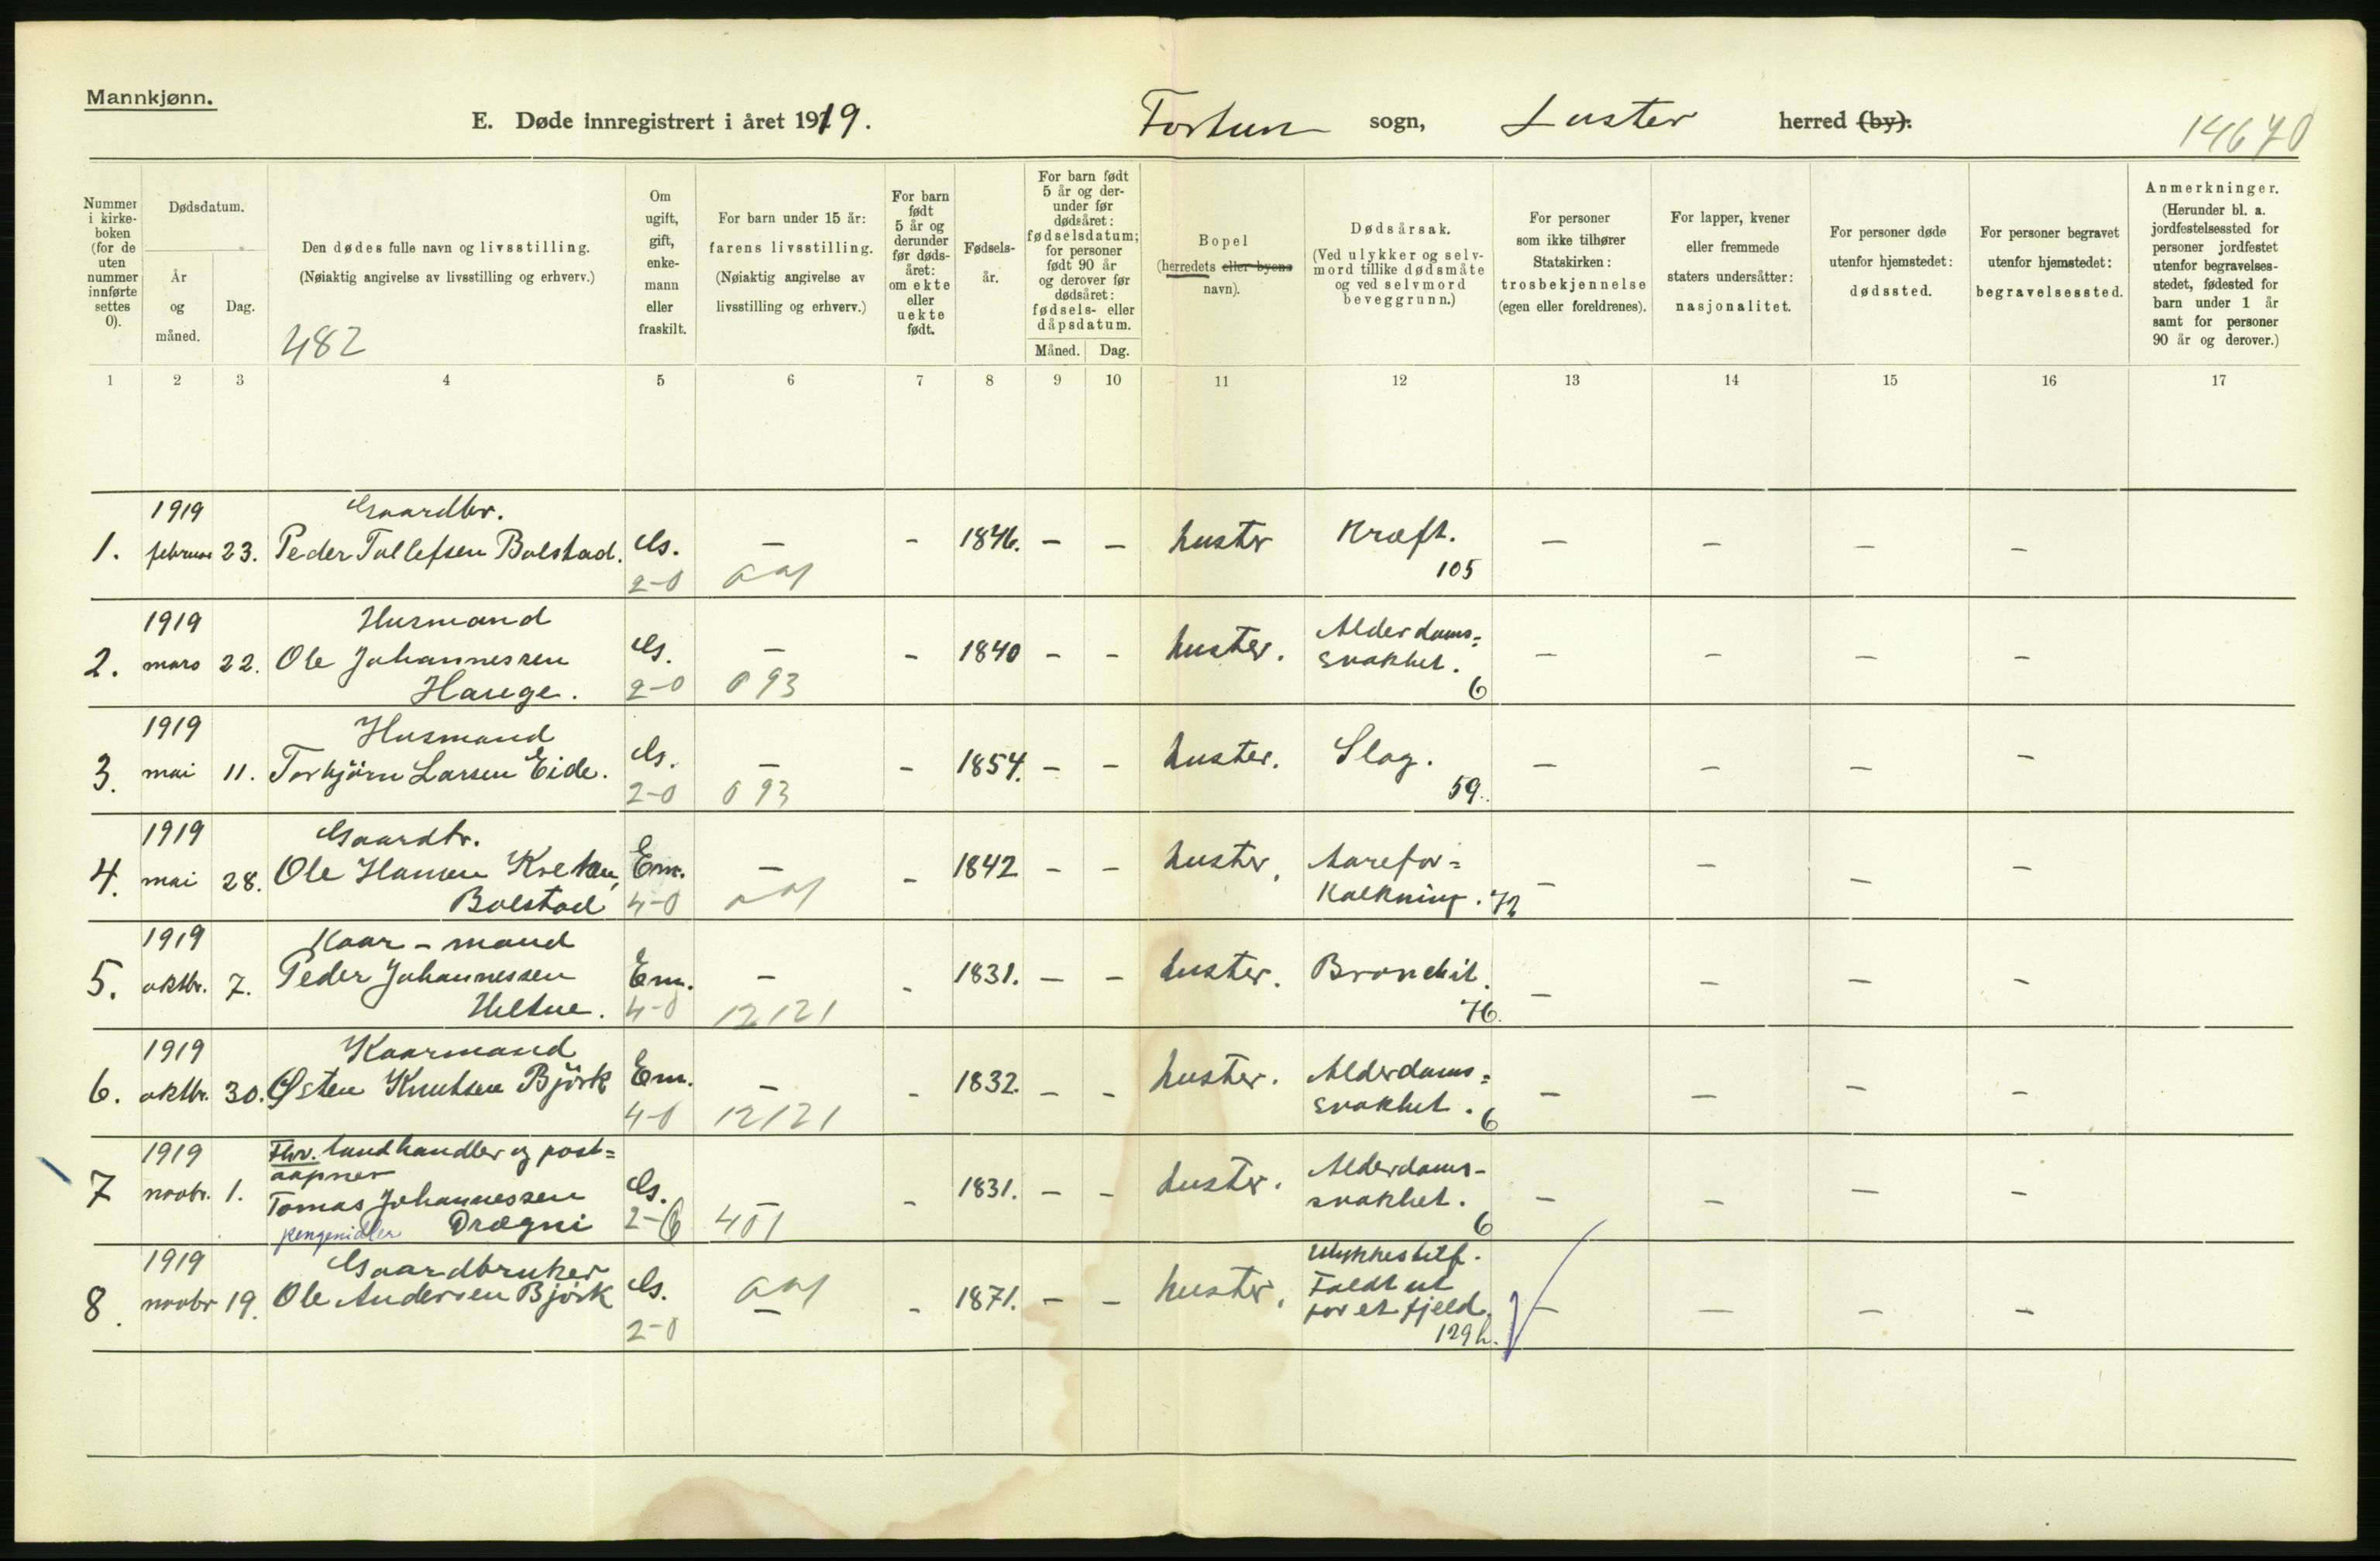 Mannkjønn.
E. Døde innregistrert i året 1919.
Fortun sogn, Luster herred (by).
14670
Nummer i kirke- boken (for de uten nummer innførte settes 0).
Dødsdatum.
År og måned.
Dag.
Den dødes fulle navn og livsstilling.
(Nøiaktig angivelse av livsstilling og erhverv.)
482
Om ugift, gift, enke- mann eller fraskilt.
For barn under 15 år: farens livsstilling.
(Nøiaktig angivelse av livsstilling og erhverv.)
For barn født 5 år og derunder før døds- året: om ekte eller uekte født.
Fødsels- år.
For barn født 5 år og der- under før dødsåret: fødselsdatum; for personer født 90 år og derover før dødsåret: fødsels- eller dåpsdatum.
Måned. Dag.
Bopel (herredets eller byens navn).
Dødsårsak.
(Ved ulykker og selv- mord tillike dødsmåte og ved selvmord beveggrunn.)
For personer som ikke tilhører Statskirken: trosbekjennelse (egen eller foreldrenes).
For lapper, kvener eller fremmede staters undersåtter: nasjonalitet.
For personer døde utenfor hjemstedet: dødssted.
For personer begravet utenfor hjemstedet: begravelsessted.
Anmerkninger.
(Herunder bl. a. jordfestelsessted for personer jordfestet utenfor begravelses- stedet, fødested for barn under 1 år samt for personer 90 år og derover.)
1 2 3 4 5 6 7 8 9 10 11 12 13 14 15 16 17
1919 Gaardbr.
1. februar 23. Peder Tollefsen Bolstad. G. – – 1846. – – Luster Kræft. – – – –
2-0 105
1919 Husmand Alderdoms=
2. mars 22. Ole Johannessen G. – – 1840 – – Luster. svakhet. – – – –
Hauge. 2-0 093 6
1919 Husmand
3. mai 11. Torbjörn Larsen Eide. G. – – 1854. – – Luster. Slag. – – – –
2-0 093 59.
1919 Gaardbr.
4. mai 28. Ole Hansen Em. – – 1842 – – Luster. Aarefor= – – – –
Bolstad 4-0 kalkning. 72
1919 Kaar-mand
5. oktbr. 7. Peder Johannessen Em. – – 1831. – – Luster. Bronchit. – – – –
Heltne. 4-0 12121 76.
1919 Kaarmand
6. oktbr. 30. Østen Knutsen Björk Em. – – 1832. – – Luster. Alderdoms= – – – –
4-0 12121 svakhet. 6
1919 Fhv. landhandler og post=
aapner
7 novbr. 1. Tomas Johannessen G. – – 1831. – – Luster. Alderdoms- – – – –
Drægni 2-6 401 svakhet. 6
1919 Gaardbruker Ulykkestilf.
8. novbr 19. Ole Andersen Björk G. – – 1871. – – Luster. Faldt ut – – – –
2-0 for et fjeld.
129h.